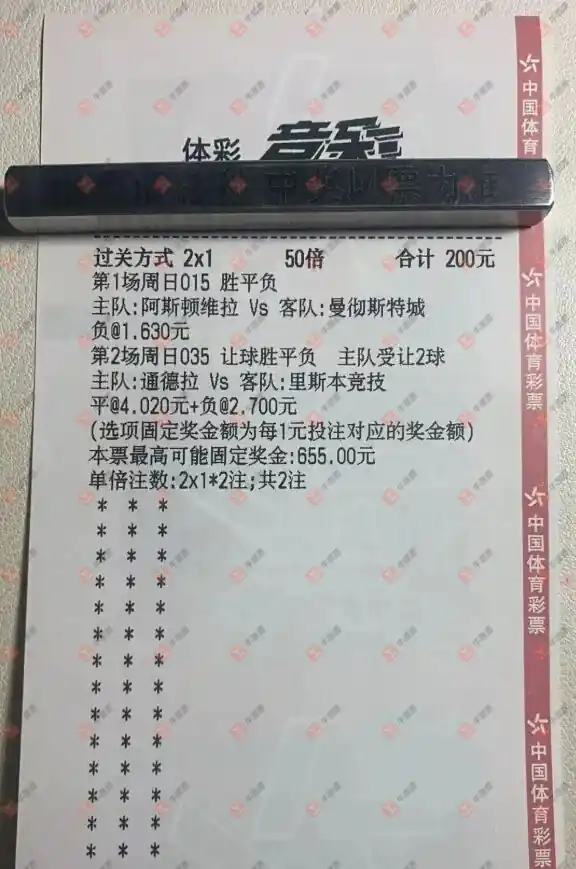 体彩 竞彩
过关方式 2x1 50倍 合计 200元
第1场周日015 胜平负
主队:阿斯顿维拉 Vs 客队:曼彻斯特城
负@1.630元
第2场周日035 让球胜平负 主队受让2球
主队:通德拉 Vs 客队:里斯本竞技
平@4.020元+负@2.700元
(选项固定奖金额为每1元投注对应的奖金额)
本票最高可能固定奖金:655.00元
单倍注数:2x1*2注;共2注
* * *
* * *
* * *
* * *
* * *
* * *
* * *
* * *
* * *
* * *
* * *
* * *
* * *
* * *
中国体育
中国体育彩票
中国体育彩票
中国体育彩票